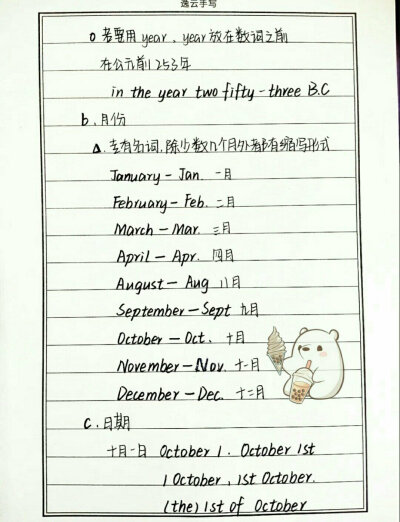 逸云手写
o 若要用 year, year 放在数词之前
在公元前1253年
in the year two fifty-three B.C
b. 月份
a. 专有名词.除少数几个月外都有缩写形式
January - Jan. 一月
February - Feb. 二月
March - Mar. 三月
April - Apr. 四月
August - Aug 八月
September - Sept 九月
October - Oct. 十月
November - Nov. 十一月
December - Dec. 十二月
c. 日期
十月一日 October 1. October 1st
1 October, 1st October.
(the) 1st of October